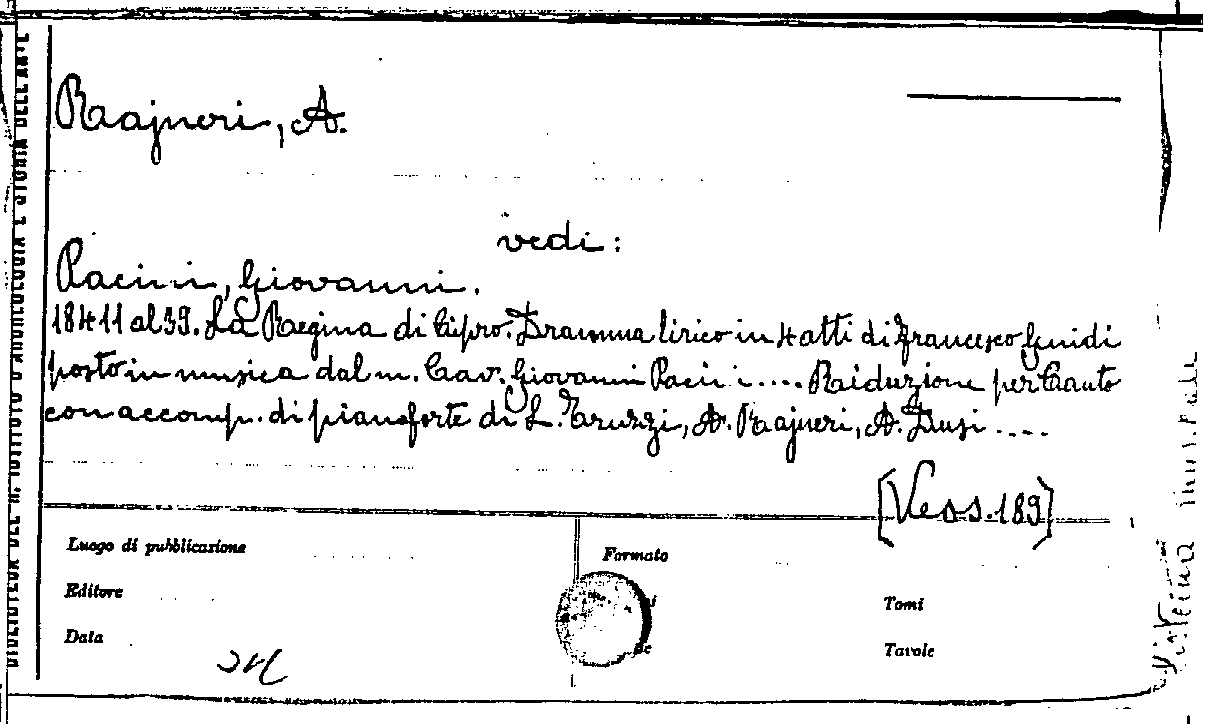 Rajneri, A.
vedi:
Pacini, Giovanni.
18411 al 39. La Regina di Cipro. Dramma lirico in 4 atti di Francesco Guidi
posto in musica dal m. Cav. Giovanni Pacini.... Riduzione per Canto
con accomp. di pianoforte di L. Truzzi, A. Rajneri, A. Dusi ....
[Vess. 189]
Luogo di pubblicazione
Formato
Editore
Tomi
Data
Tavole
BIBLIOTECA DEL R. ISTITUTO D'ARCHEOLOGIA E STORIA DELL'ARTE